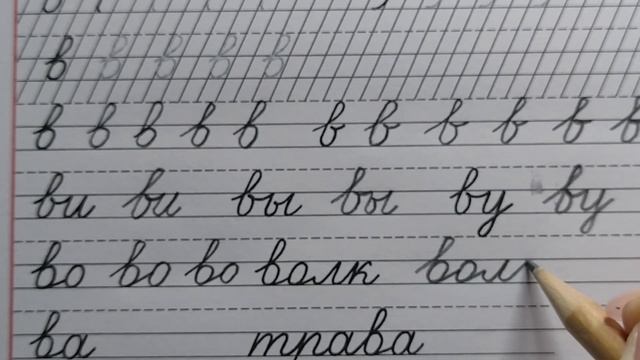 в в в в в
в в в в в в в в в в в
ви ви вы вы ву ву
во во во волк вол
ва трава